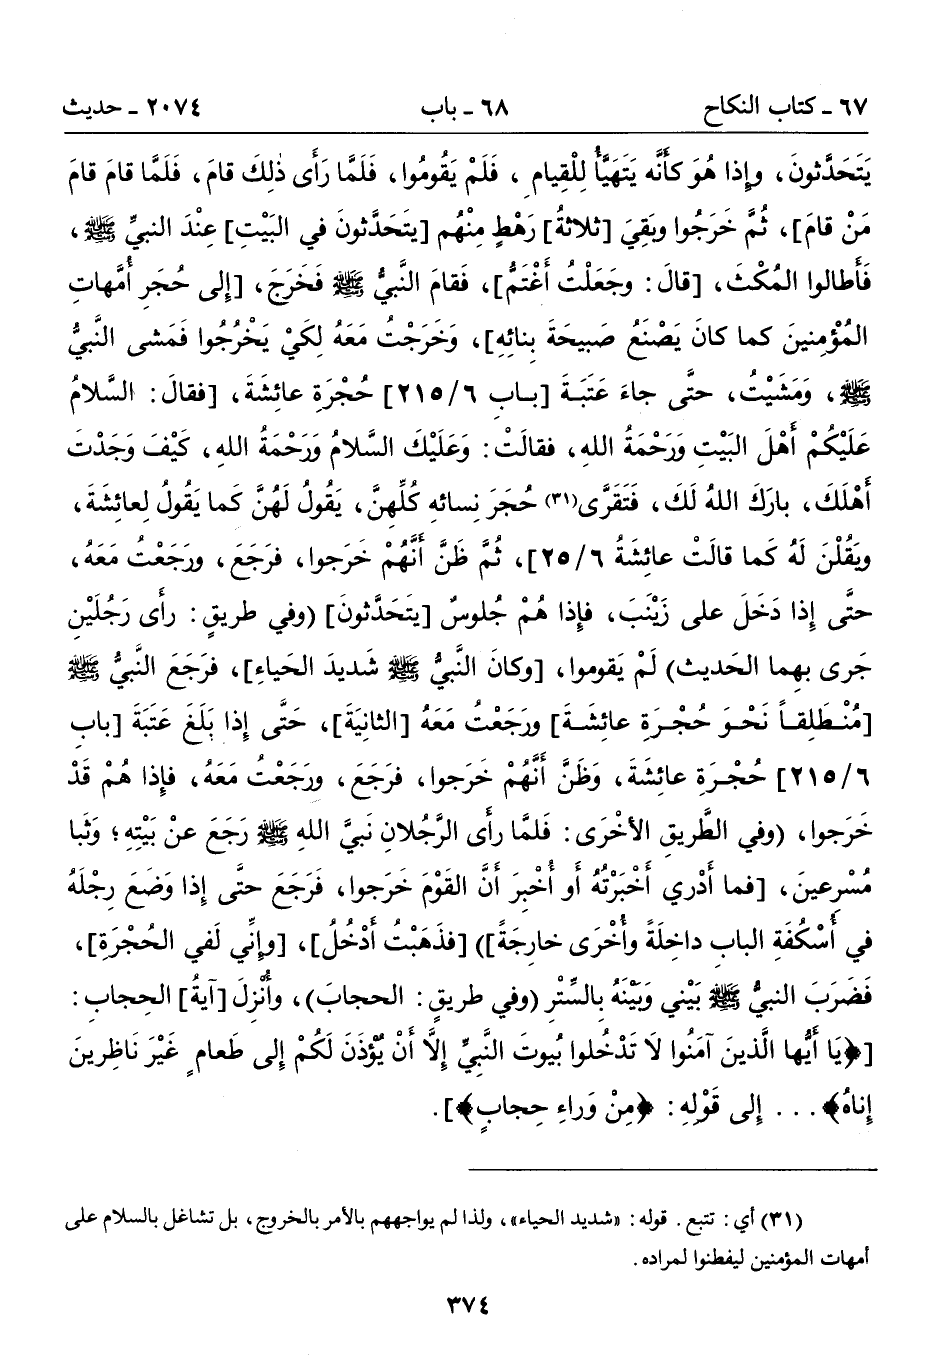 ٦٧ ـ كتاب النكاح ٦٨ ـ باب ٢٠٧٤ ـ حديث
يَتَحَدَّثونَ، وإِذا هُوَ كأَنَّه يَتَهَيَّأُ لِلْقِيامِ ، فَلَمْ يَقُومُوا، فَلَمَّا رَأَى ذٰلِكَ قامَ، فَلَمَّا قامَ قامَ
مَنْ قامَ]، ثُمَّ خَرَجُوا وبَقِيَ [ثلاثةُ] رَهْطٍ مِنْهُم [يتَحَدَّثونَ في البَيْتِ] عِنْدَ النبيِّ ﷺ،
فَأَطالوا المُكْثَ، [قالَ: وجَعَلْتُ أَغْتَمُّ]، فَقامَ النَّبيُّ ﷺ فَخَرَجَ، [إِلى حُجَرِ أُمَّهاتِ
المُؤْمِنينَ كما كانَ يَصْنَعُ صَبيحَةَ بِنائِهِ]، وَخَرَجْتُ مَعَهُ لِكَيْ يَخْرُجُوا فَمَشى النَّبيُّ
ﷺ، وَمَشَيْتُ، حتَّى جاءَ عَتَبَةَ [بـاب ٦/ ٢١٥] حُجْرَةِ عائِشَةَ، [فقالَ: السَّلامُ
عَلَيْكُمْ أَهْلَ البَيْتِ وَرَحْمَةُ اللهِ، فقالَتْ: وَعَلَيْكَ السَّلامُ وَرَحْمَةُ اللهِ، كَيْفَ وَجَدْتَ
أَهْلَكَ، بارَكَ اللهُ لَكَ، فَتَقَرَّى(٣١) حُجَرَ نِسائهِ كُلِّهِنَّ، يَقُولُ لَهُنَّ كَما يَقُولُ لِعائشَةَ،
ويَقُلْنَ لَهُ كَما قالَتْ عائشَةُ ٦/ ٢٥]، ثُمَّ ظَنَّ أَنَّهُمْ خَرَجوا، فرَجَعَ، ورَجَعْتُ مَعَهُ،
حتَّى إِذا دَخَلَ على زَيْنَبَ، فإِذا هُمْ جُلوسٌ [يتَحَدَّثونَ] (وفي طريقٍ: رأى رَجُلَيْنِ
جَرى بِهِما الحَديث) لَمْ يَقوموا، [وكانَ النَّبيُّ ﷺ شَديدَ الحَياءِ]، فرَجَعَ النَّبيُّ ﷺ
[مُنْـطَلِقـاً نَحْـوَ حُجْـرَةِ عائِشَـةَ] ورَجَعْتُ مَعَهُ [الثانِيَةَ]، حَتَّى إِذا بَلَغَ عَتَبَةَ [بابِ
٦/ ٢١٥] حُجْـرَةِ عائِشَةَ، وَظَنَّ أَنَّهُمْ خَرَجوا، فرَجَعَ، ورَجَعْتُ مَعَهُ، فإِذا هُمْ قَدْ
خَرَجوا، (وفي الطَّريقِ الأخْرَى: فَلَمَّا رأَى الرَّجُلانِ نَبيَّ اللهِ ﷺ رَجَعَ عنْ بَيْتِهِ؛ وَثَبا
مُسْرِعينَ، [فما أَدْري أَخْبَرْتُهُ أَو أُخْبِرَ أَنَّ القَوْمَ خَرَجوا، فَرَجَعَ حتَّى إِذا وَضَعَ رِجْلَهُ
في أُسْكُفَةِ البابِ داخِلَةً وأُخْرَى خارِجَةً]) [فذَهَبْتُ أَدْخُلُ]، [وإِنِّي لَفي الحُجْرَةِ]،
فَضَرَبَ النبيُّ ﷺ بَيْني وَبَيْنَهُ بالسِّتْرِ (وفي طريقٍ: الحجابَ)، وأُنْزِلَ [آيةُ] الحجابِ:
[﴿يَا أَيُّها الَّذينَ آمَنُوا لَا تَدْخُلوا بُيوتَ النَّبيِّ إِلَّا أَنْ يُؤْذَنَ لَكُمْ إِلى طَعامٍ غَيْرَ نَاظِرِينَ
إِناهُ﴾... إِلى قَوْلِهِ: ﴿مِنْ وَراءِ حِجابٍ﴾].
(٣١) أي: تتبع. قوله: «شديد الحياء»، ولذا لم يواجههم بالأمر بالخروج، بل تشاغل بالسلام على
أمهات المؤمنين ليفطنوا لمراده.
٣٧٤